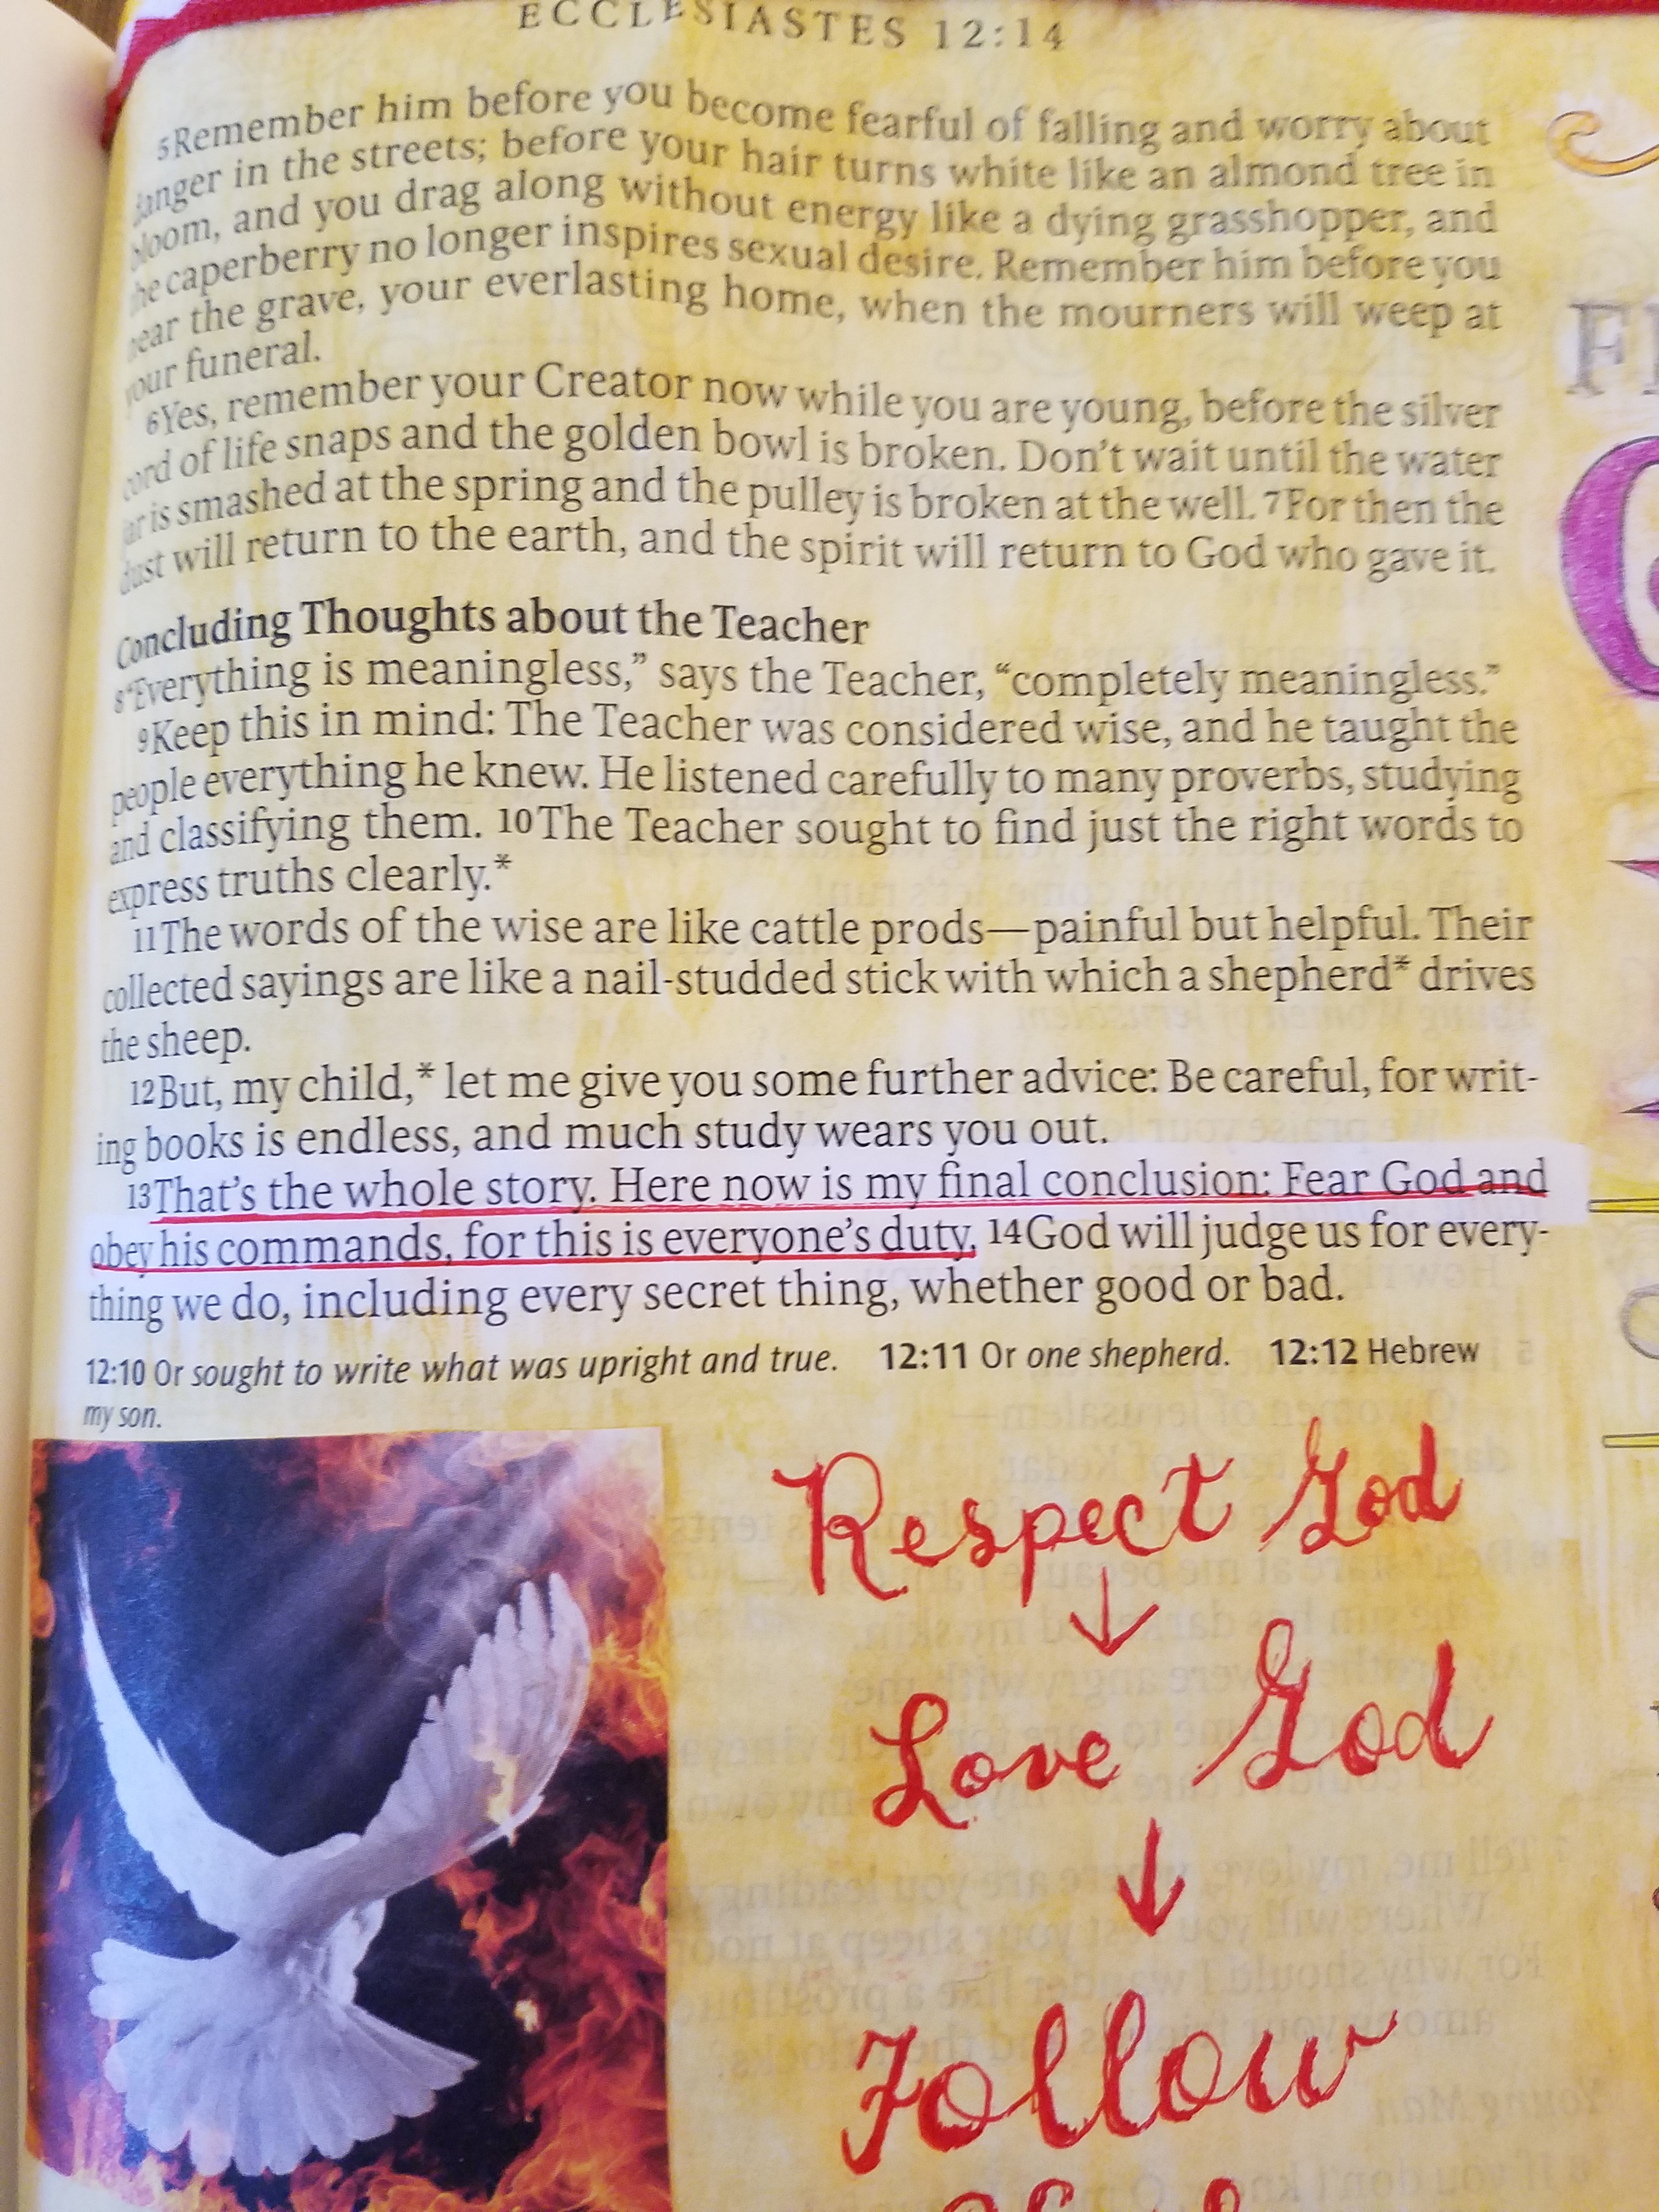 ECCLESIASTES 12:14
5Remember him before you become fearful of falling and worry about
danger in the streets; before your hair turns white like an almond tree in
bloom, and you drag along without energy like a dying grasshopper, and
the caperberry no longer inspires sexual desire. Remember him before you
near the grave, your everlasting home, when the mourners will weep at
your funeral.
6Yes, remember your Creator now while you are young, before the silver
cord of life snaps and the golden bowl is broken. Don't wait until the water
jar is smashed at the spring and the pulley is broken at the well. 7For then the
dust will return to the earth, and the spirit will return to God who gave it.
Concluding Thoughts about the Teacher
8"Everything is meaningless," says the Teacher, "completely meaningless."
9Keep this in mind: The Teacher was considered wise, and he taught the
people everything he knew. He listened carefully to many proverbs, studying
and classifying them. 10The Teacher sought to find just the right words to
express truths clearly.*
11The words of the wise are like cattle prods—painful but helpful. Their
collected sayings are like a nail-studded stick with which a shepherd* drives
the sheep.
12But, my child,* let me give you some further advice: Be careful, for writ-
ing books is endless, and much study wears you out.
13That's the whole story. Here now is my final conclusion: Fear God and
obey his commands, for this is everyone's duty. 14God will judge us for every-
thing we do, including every secret thing, whether good or bad.
12:10 Or sought to write what was upright and true. 12:11 Or one shepherd. 12:12 Hebrew
my son.
Respect God
↓
Love God
↓
Follow